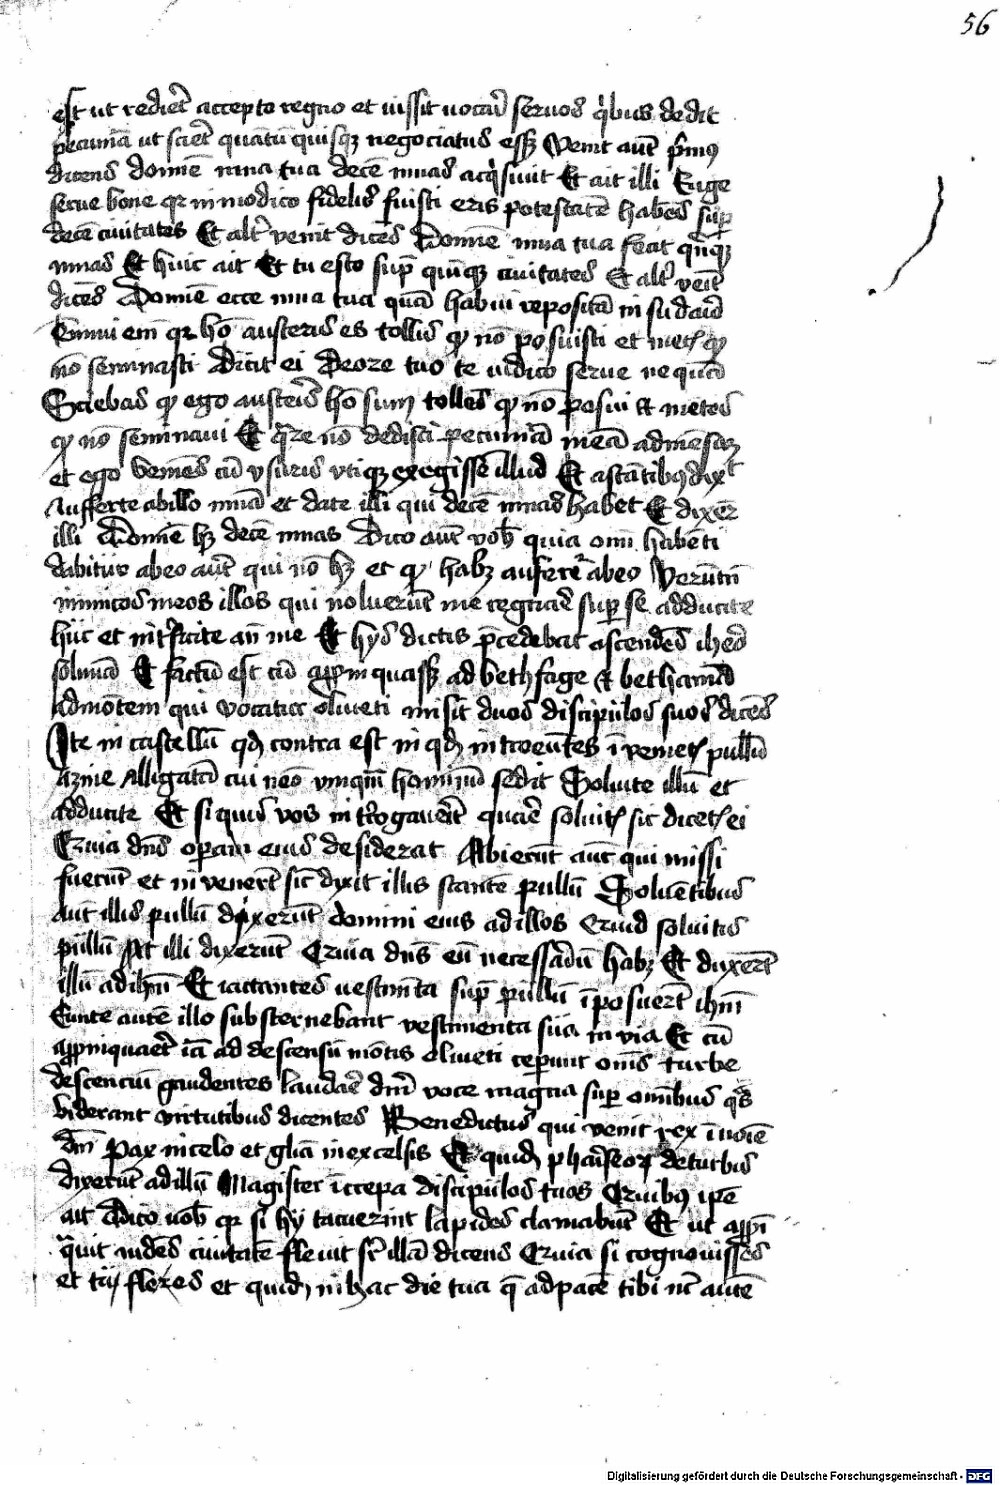 56
est ut rediẽt accepto regno et iussit vocari servos qibus dedit
pecuniã ut sciret quãtũ quisq; negociatus esset Venit autẽ pimꝯ
dicens domiẽ mna tua decẽ mnas acqisivit Et ait illi Euge
serve bone qr in modico fidelis fuisti eris potestatẽ habẽs sup
decẽ civitates Et alt̾ venit dicẽs Domiẽ mna tua fecit quĩq;
mnas Et huic ait Et tu esto sup̱ quĩq; civitates Et alt̾ venit
dicẽs Domiẽ ecce mna tua quã habui repositã in sudario
Timui em̃ qr hõ austerus es tollis qđ nõ posuisti et metis qđ
nõ seminasti Dicit ei De ore tuo te iudico serve nequã
Sciebas qđ ego austerus hõ sum tolles qđ nõ posui et metes
qđ nõ seminavi Et qͣre nõ dedisti pecuniã meã ad mẽsã
et ego veniẽs cũ usuris utiq; exegissẽ illud Et astãtibꝯ dixit
Aufferte ab illo mnã et date illi qui decẽ mnas habet Et dixer̃
illi Domiẽ hꝫ decẽ mnas Dico autẽ vob̾ quia omĩ habẽti
dabitur ab eo autẽ qui nõ hꝫ et qđ habꝫ auferet̾ ab eo Verũtñ
inimicos meos illos qui noluerũt me regnare sup̱ se adducite
huc et int̾ficite añ me Et hys dictis p̃cedebat ascendẽs iheo
solimã Et factũ est cũ app̱inquasset ad bethfage et bethaniã
ad mõtem qui vocatur oliveti misit duos discipulos suos dicẽs
Ite in castellũ qđ contra est in qđ introeũtes ĩvenietis pullũ
azine Alligatũ cui nẽo unq̃m hominũ sedit Solvite illũ et
adducite Et si quis vos int̾rogaverit quare solvitis sic dicetis ei
Quia dñs operam eius desiderat Abierunt autẽ qui missi
fuerũt et invenerũt sic dixit illis stantẽ pullũ Solvẽtibus
autẽ illis pullũ dixerũt domini eius ad illos Quid solvitis
pullũ At illi dixerũt Quia dñs eũ necessariũ habꝫ Et duxerũt
illũ ad ihm̃ Et iactantes vestim̃ta sup̱ pullũ ĩposuerũt ihm̃
Eunte autẽ illo substernebant vestimenta sua in via Et cũ
app̱inquaret iã ad descensũ mõtis oliveti ceperunt om̃s turbe
descenciũ gaudentes laudare dm̃ voce magna sup̱ omĩbus qͣs
viderant virtutibus dicentes Benedictus qui venit rex ĩ noĩe
dñi Pax in celo et gliã in excelsis Et quidã phariseorꝝ de turbis
dixerũt ad illũ Magister ĩcrepa discipulos tuos Quibꝯ ip̃e
ait Dico vob̾ qr si hy tacuerint lapides clamabũt Et ut app̱ĩ
qͣvit videns civitatẽ flevit sr̃ illã dicens Quia si cognovisses
et tu fleres et quidẽ in hac die tua q̃ ad pacẽ tibi nũc autẽ
Digitalisierung gefördert durch die Deutsche Forschungsgemeinschaft - DFG